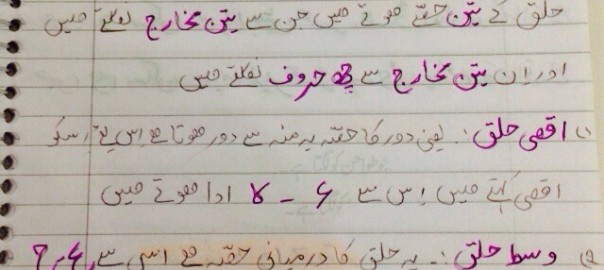 حلق کے تین حصے ہوتے ہیں جن سے تین مخارج نکلتے ہیں
اور ان تین مخارج سے چھ حروف نکلتے ہیں
(۱) اقصی حلق :۔ یعنی دور کا حصہ یہ منہ سے دور ہوتا ہے اس لیے اسکو
اقصی کہتے ہیں اس سے ء - ہ ادا ہوتے ہیں
(۲) وسط حلق :۔ یہ حلق کا درمیانی حصہ ہے اسی سے ع - ح